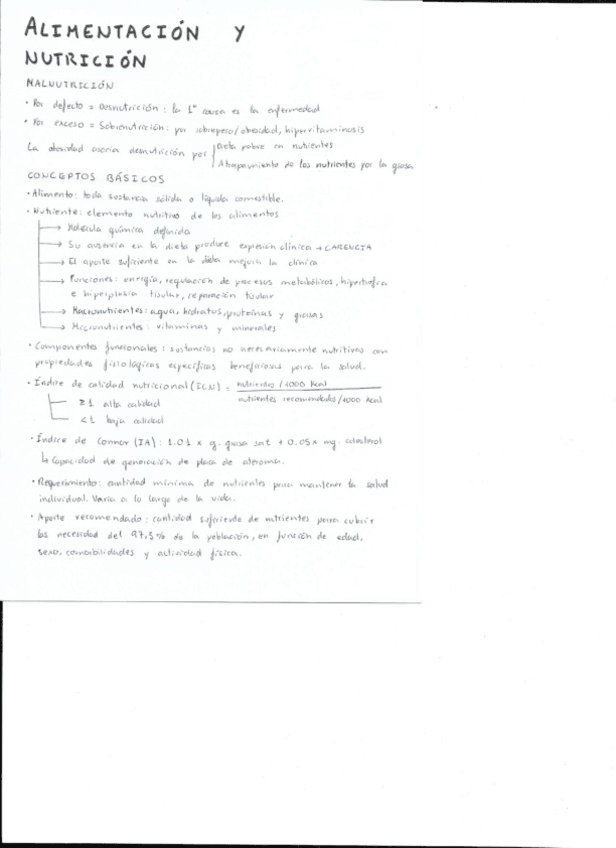 ALIMENTACIÓN Y
NUTRICIÓN
MALNUTRICIÓN
• Por defecto = Desnutrición: la 1ª causa es la enfermedad
• Por exceso = Sobrenutrición: por sobrepeso/obesidad, hipervitaminosis
La obesidad asocia desnutrición por Dieta pobre en nutrientes
Atrapamiento de los nutrientes por la grasa
CONCEPTOS BÁSICOS
• Alimento: toda sustancia sólida o líquida comestible.
• Nutriente: elemento nutritivo de los alimentos
→ Molécula química definida
→ Su ausencia en la dieta produce expresión clínica → CARENCIA
→ El aporte suficiente en la dieta mejora la clínica
→ Funciones: energía, regulación de procesos metabólicos, hipertrofia
e hiperplasia tisular, reparación tisular
→ Macronutrientes: agua, hidratos, proteínas y grasas
→ Micronutrientes: vitaminas y minerales
• Componentes funcionales: sustancias no necesariamente nutritivas con
propiedades fisiológicas específicas beneficiosas para la salud.
• Índice de calidad nutricional (ICN) = nutrientes / 1000 Kcal
nutrientes recomendados / 1000 kcal
≥1 alta calidad
<1 baja calidad
• Índice de Connor (IA): 1.01 x g. grasa sat + 0.05 x mg. colesterol
↳ Capacidad de generación de placa de ateroma.
• Requerimiento: cantidad mínima de nutrientes para mantener la salud
individual. Varía a lo largo de la vida.
• Aporte recomendado: cantidad suficiente de nutrientes para cubrir
las necesidad del 97,5% de la población, en función de edad,
sexo, comorbilidades y actividad física.